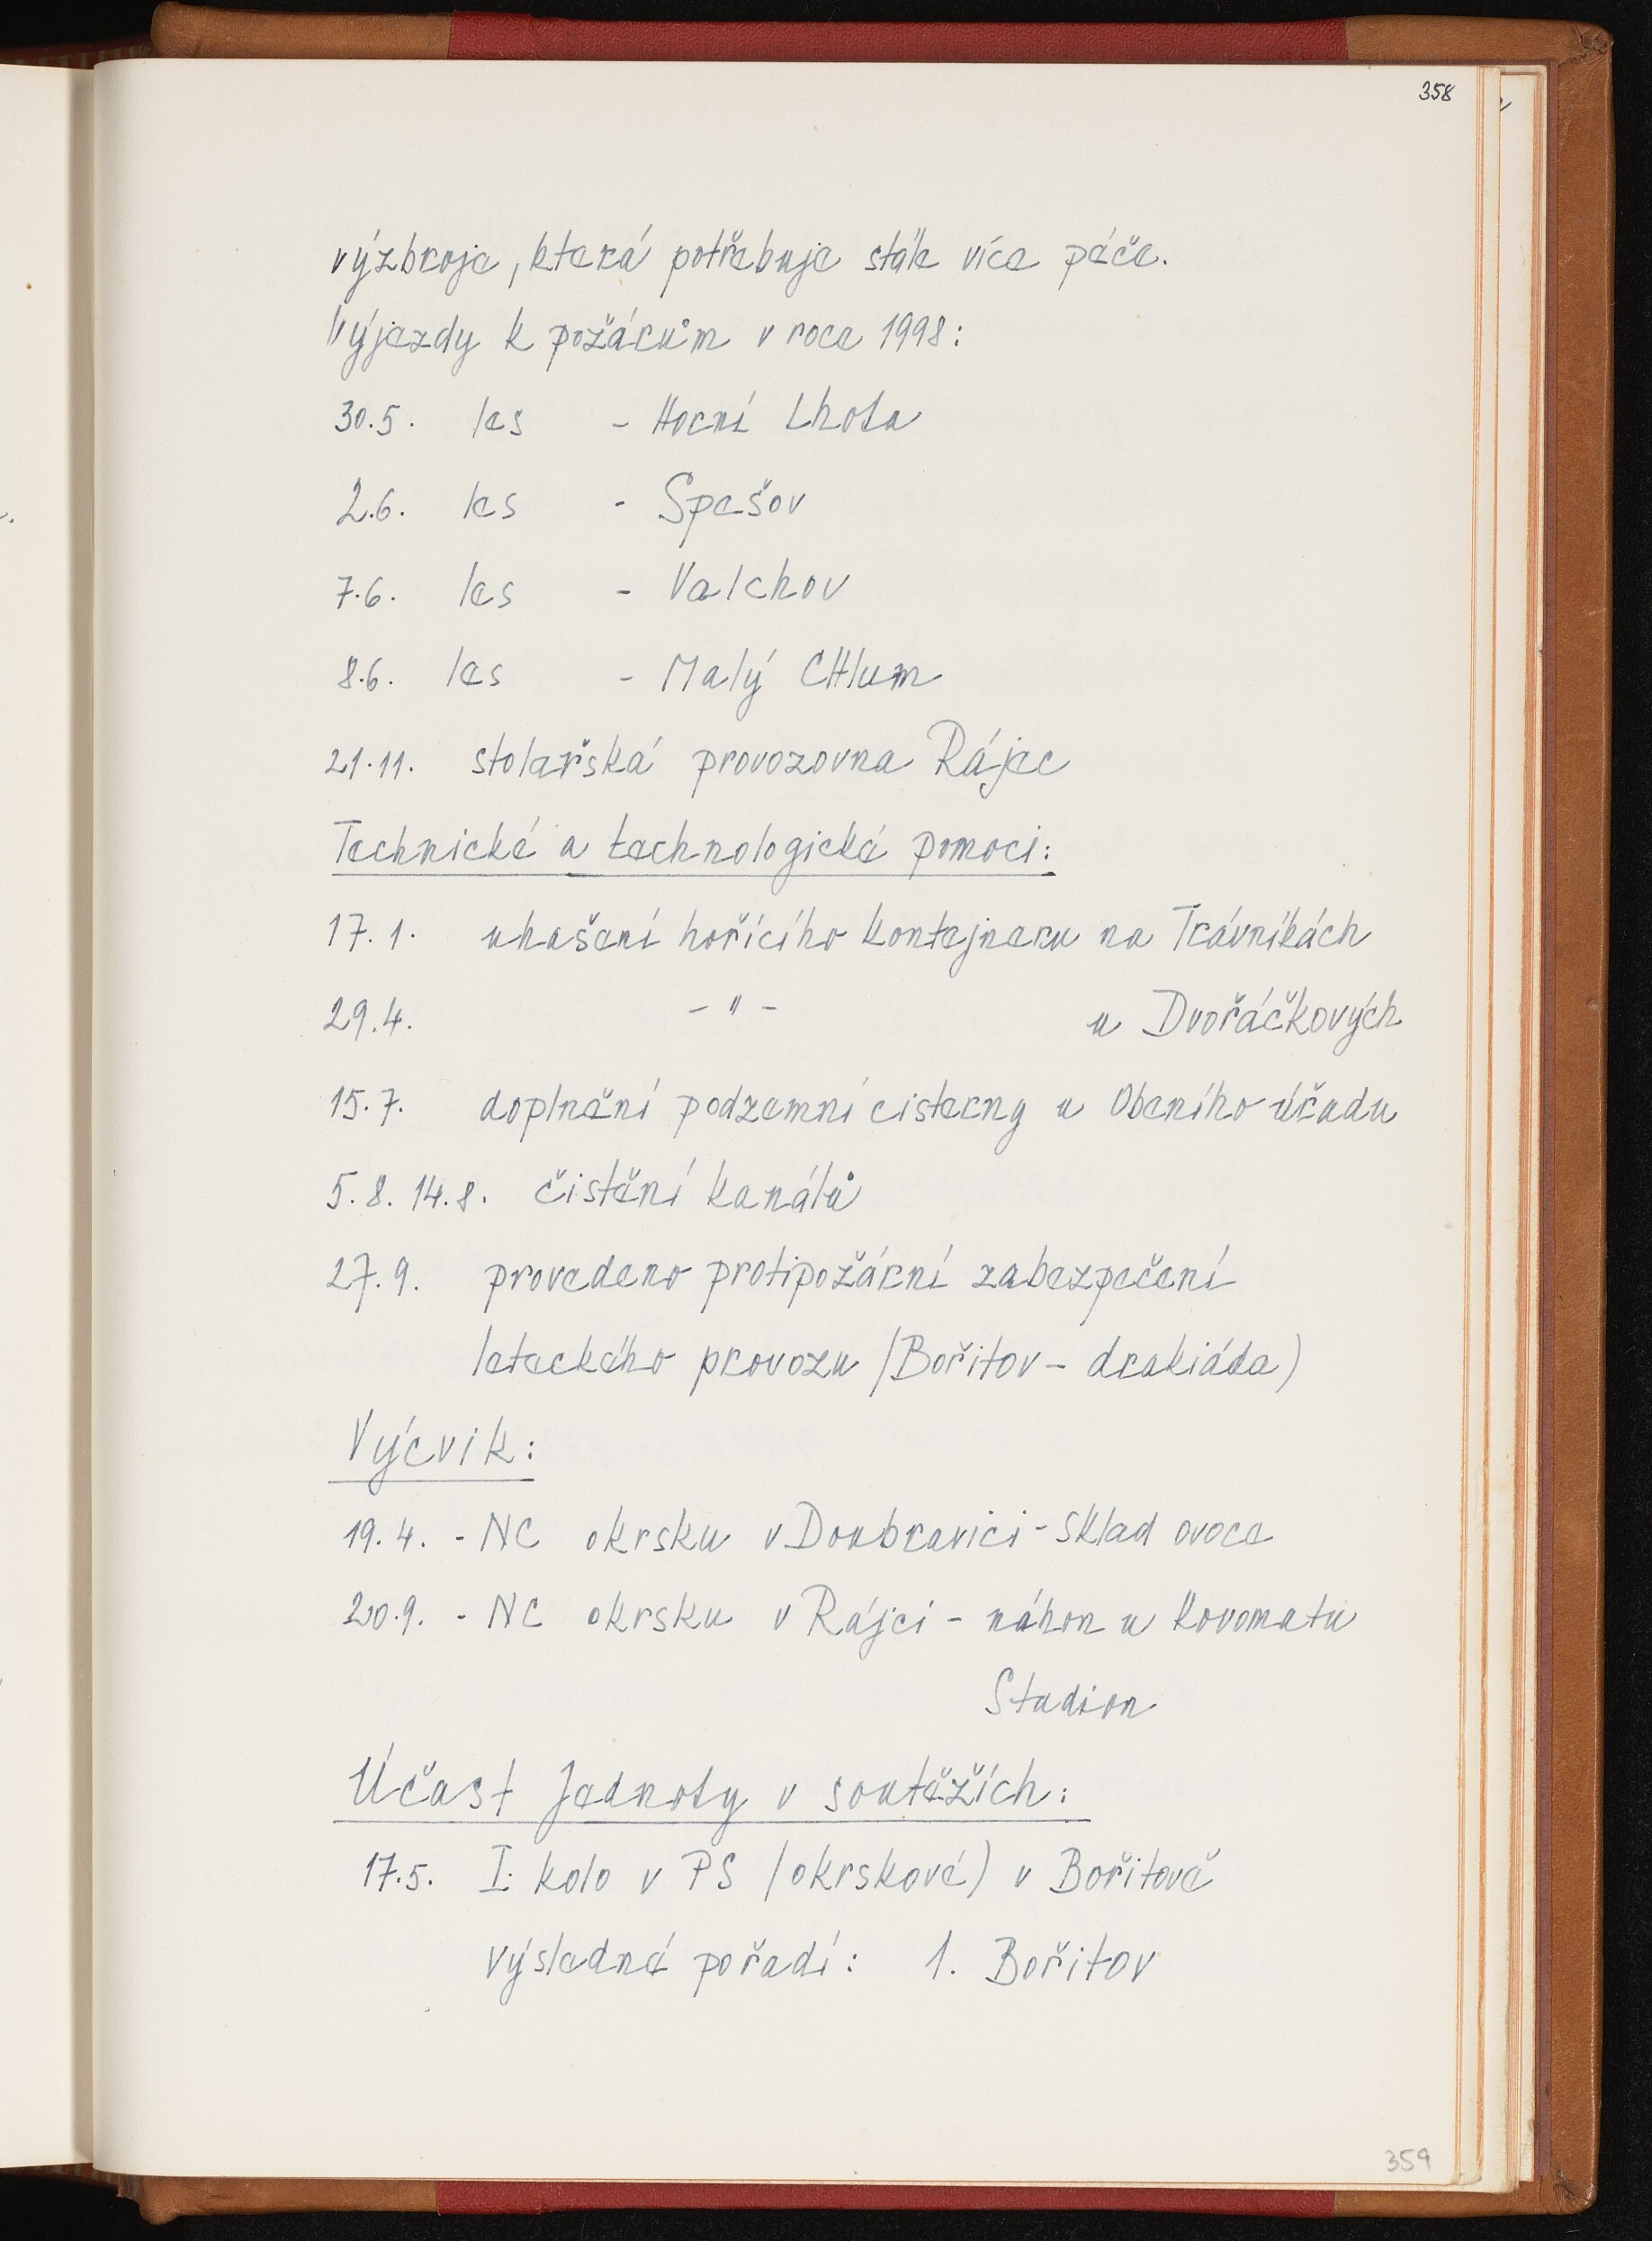 358
výzbroje, která potřebuje stále více péče.
Výjezdy k požárům v roce 1998:
30.5. les - Horní Lhota
2.6. les - Spešov
7.6. les - Valchov
8.6. les - Malý CHlum
21.11. stolařská provozovna Rájec
Technické a technologické pomoci:
17.1. uhašení hořícího kontejneru na Trávníkách
29.4. - " - u Dvořáčkových
15.7. doplnění podzemní cisterny u Obeního úřadu
5.8. 14.8. čistění kanálů
27.9. provedeno protipožární zabezpečení
leteckého provozu (Bořitov - drakiáda)
Výcvik:
19.4. - NC okrsku v Doubravici - sklad ovoce
20.9. - NC okrsku v Rájci - náhon u Kovomatu
Stadion
Účast Jednoty v soutěžích:
17.5. I. kolo v PS (okrskové) v Bořitově
výsledné pořadí: 1. Bořitov
359